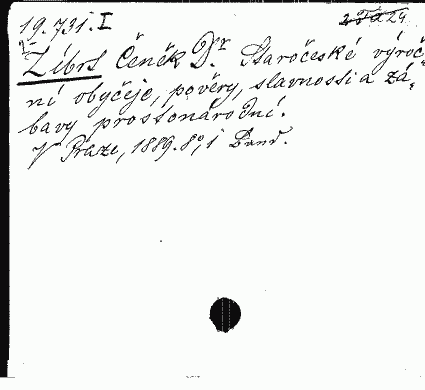 19.731.I
Zíbrt Čeněk Dr. Staročeské výroč-
ní obyčeje, pověry, slavnosti a zá-
bavy prostonárodní.
V Praze, 1889. 8°, 1 Band.